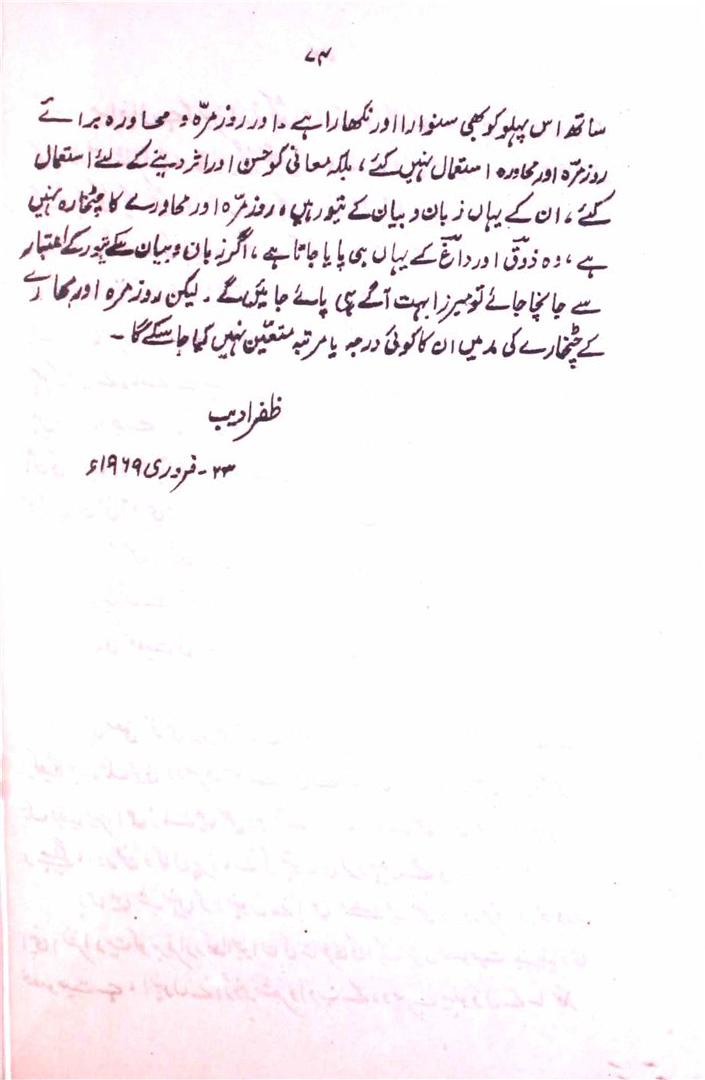 ۷۴
ساتھ اس پہلو کو بھی سنوارا اور نکھارا ہے ۔ اور روز مرّہ و محاورہ برائے
روز مرّہ اور محاورہ استعمال نہیں کئے ، بلکہ معانی کو حسن اور اثر دینے کے لئے استعمال
کئے ، ان کے یہاں زبان و بیان کے تیور ہیں ، روز مرّہ اور محاورے کا چٹخارہ نہیں
ہے ، وہ ذوقؔ اور داغؔ کے یہاں ہی پایا جاتا ہے ، اگر زبان و بیان کے تیور کے اعتبار
سے جانچا جائے تو میرزا بہت آگے ہی پائے جائیں گے ۔ لیکن روز مرہ اور محاورے
کے چٹخارے کی مد میں ان کا کوئی درجہ یا مرتبہ متعیّن نہیں کیا جا سکے گا ۔
ظفر ادیب
۲۳ - فروری ۱۹۶۹ء